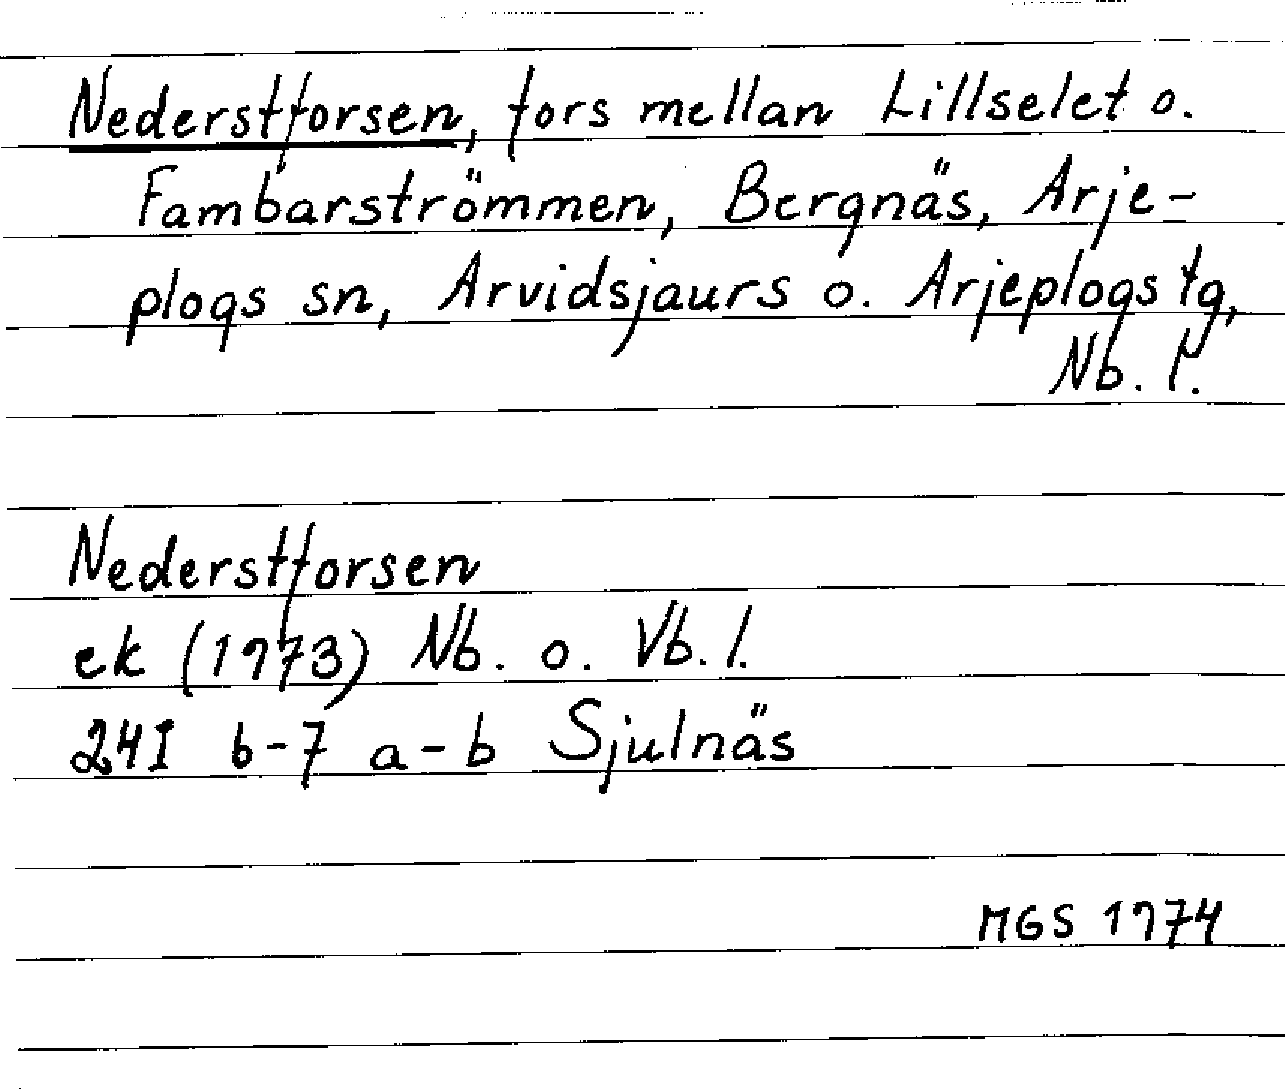 Nederstforsen, fors mellan Lillselet o.
Fambarströmmen, Bergnäs, Arje-
plogs sn, Arvidsjaurs o. Arjeplogs tg,
Nb. l.
Nederstforsen
ek (1973) Nb. o. Vb. l.
24I 6-7 a-b Sjulnäs
MGS 1974